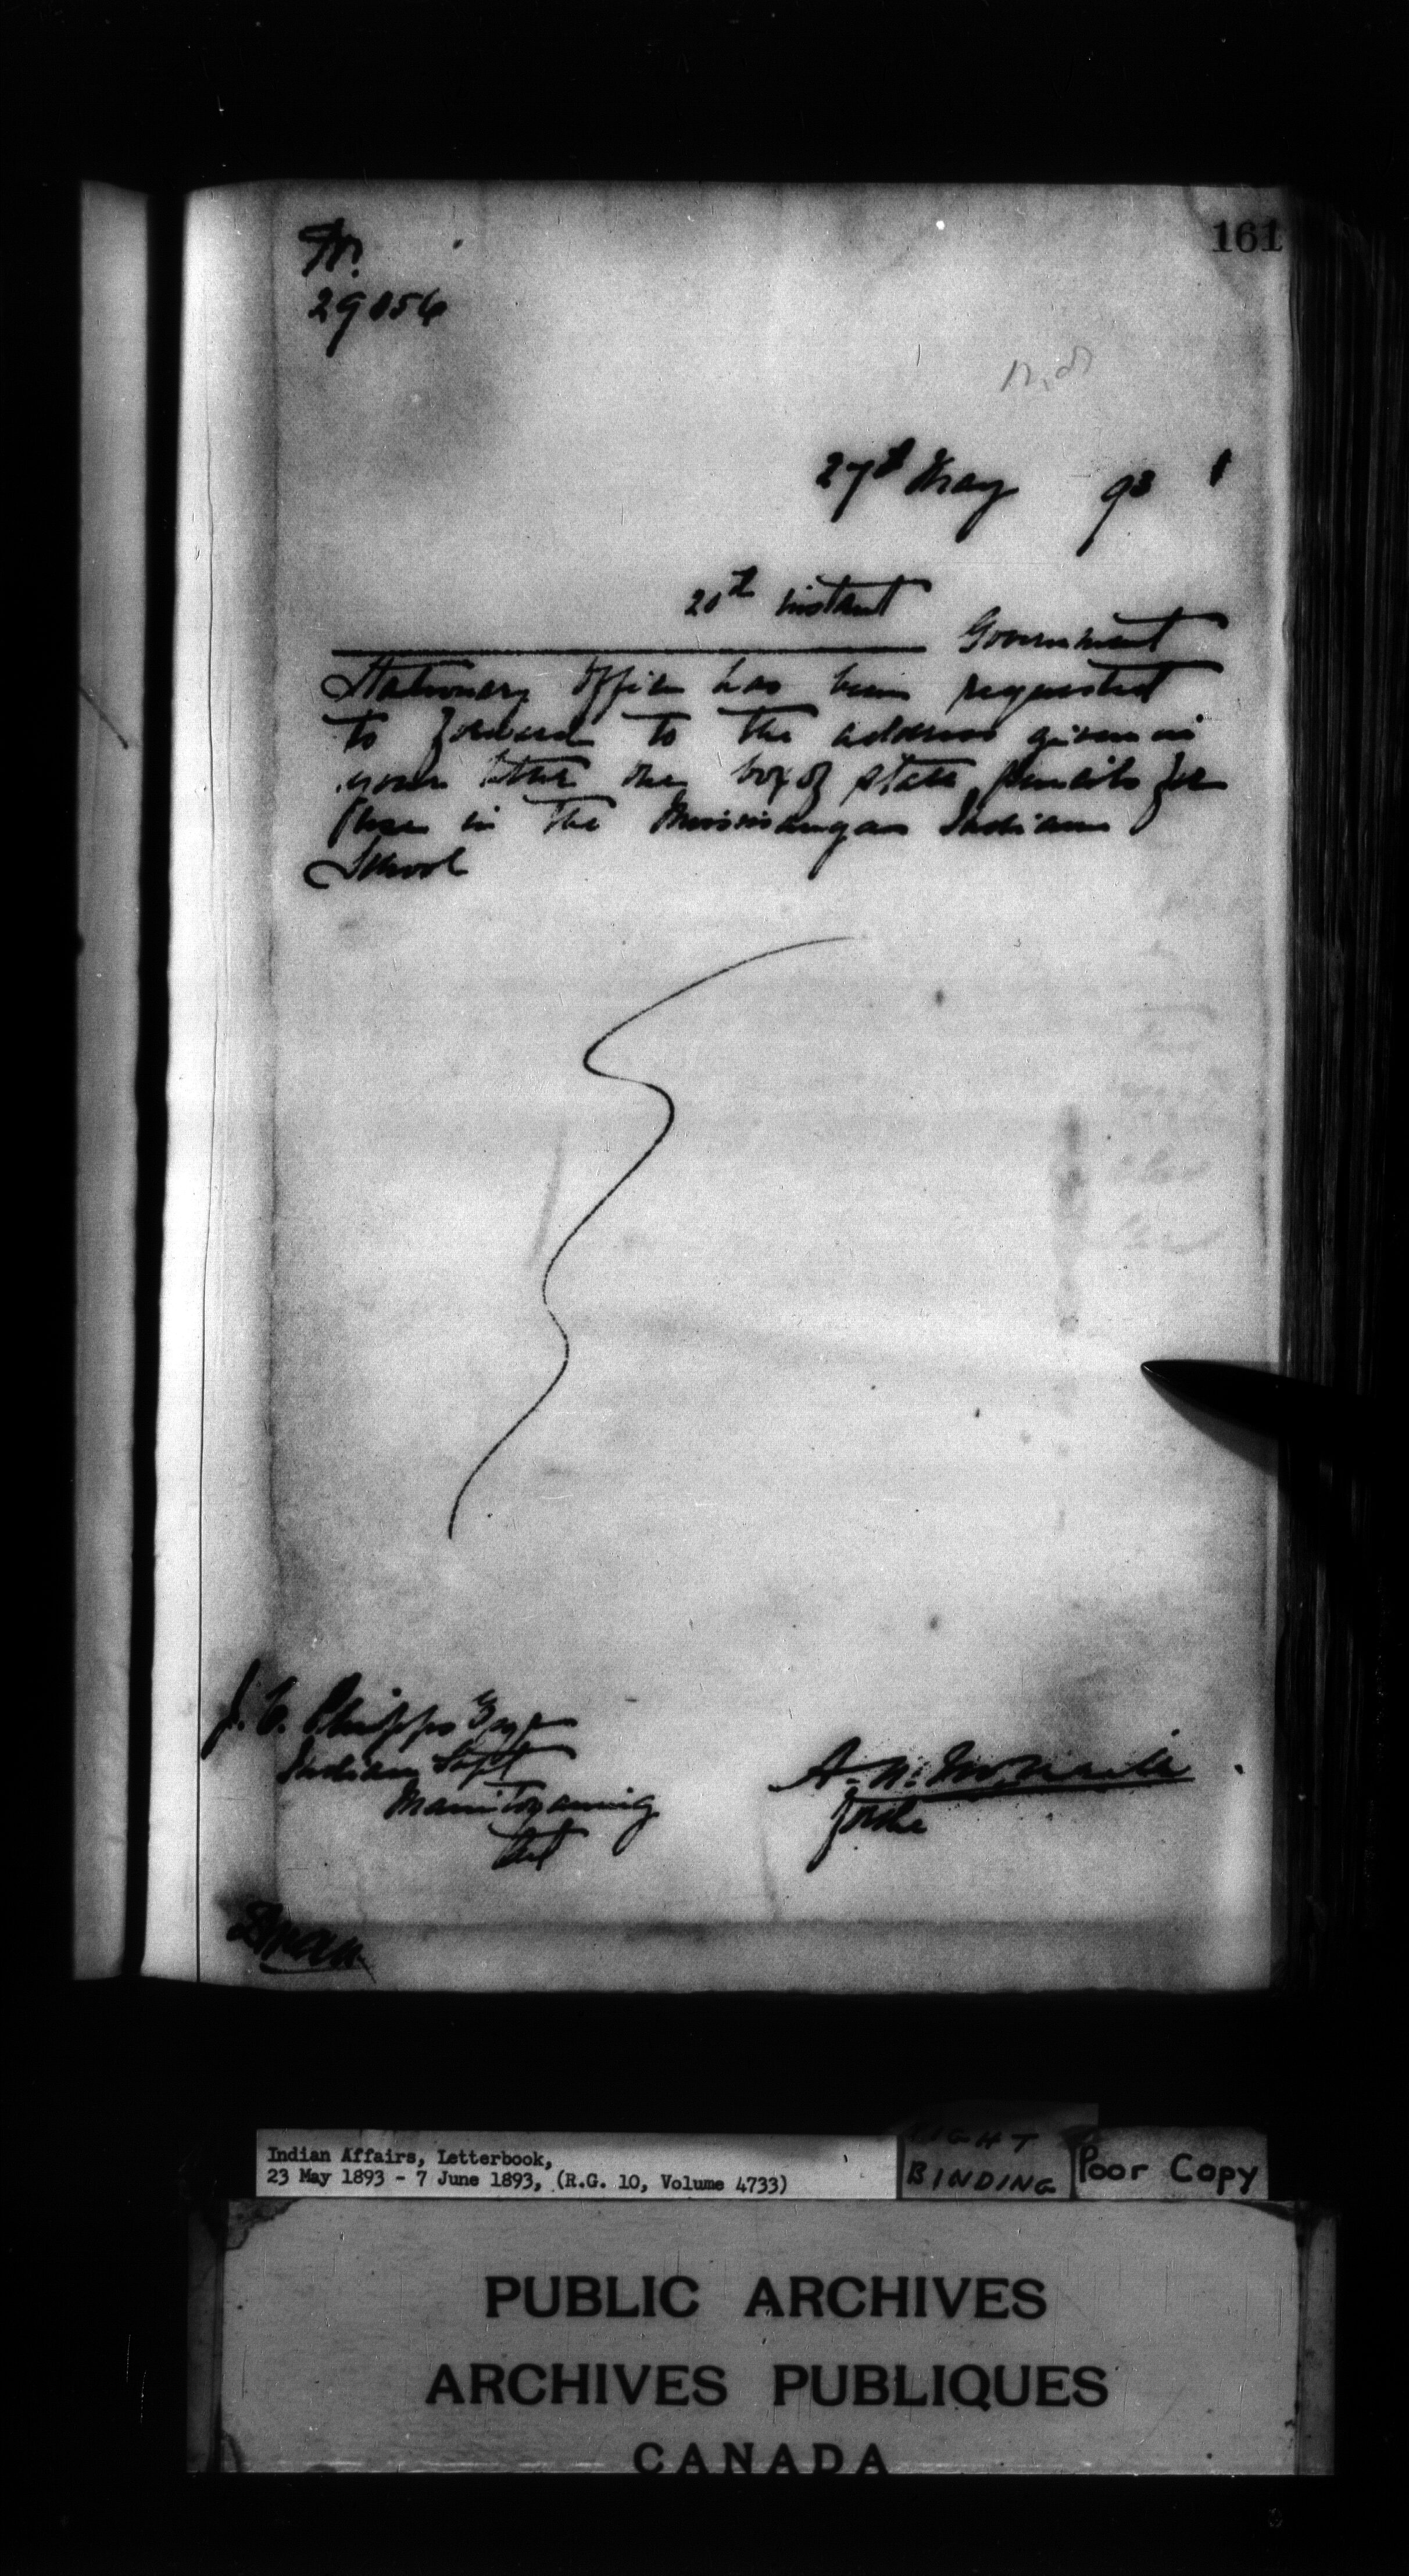 161
29056
27th May 93
20th instant
Government
Stationary Office has been requested
to forward to the address given in
your letter one box of slate pencils for
use in the Mississauga Indian
School
J. C. Phipps Esqr
Indian Supt
Manitowaning
Ont
A. N. McNeill
for the
Indian Affairs, Letterbook,
23 May 1893 - 7 June 1893, (R.G. 10, Volume 4733)
BINDING
Poor Copy
PUBLIC ARCHIVES
ARCHIVES PUBLIQUES
CANADA